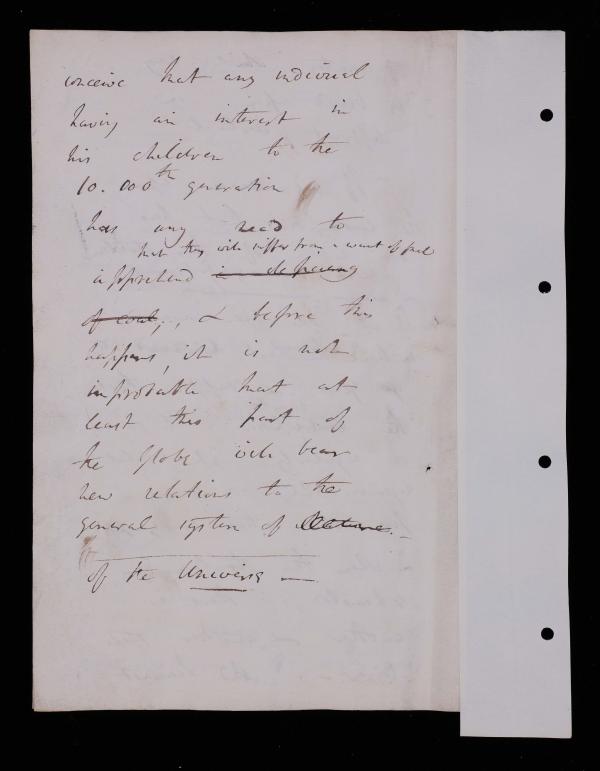 conceive that any individual
having an interest in
his children to the
10.000th generation
has any need to
that they will suffer from a want of fuel
apprehend a deficiency
of coal;, & before this
happens, it is not
improbable that at
least this part of
the Globe will bear
new relations to the
general system of Nature. –
of the Universe —